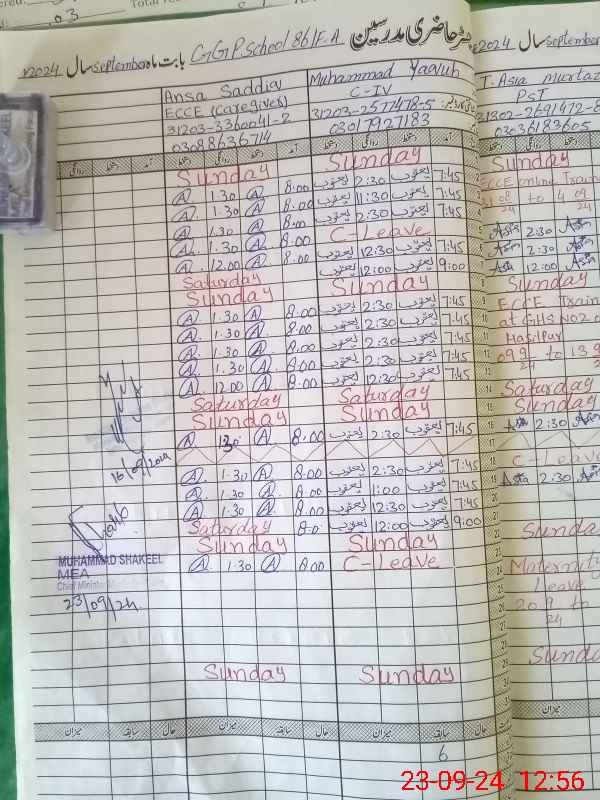 رجسٹر حاضری مدرسین GGPSchool 86/F-A بابت ماہ September سال 2024
2024 سال September
Ansa Saddia
ECCE (Caregiver)
31203-3360041-2
03088636714
Muhammad Yaqub
C-IV
31203-2577478-5
03017927183
T. Asia Murtaz
PST
31302-2691472-8
03036183605
آمد دستخط روانگی دستخط
Sunday Sunday Sunday
A. 1.30 A 8.00 یعقوب 2:30 یعقوب 7:45 ECCE online Train
A. 1.30 A. 8.00 یعقوب 11:30 یعقوب 7:45 to 4 09/24
A. 1.30 A 8.00 یعقوب 2:30 یعقوب 7:45
A. 1.30 A. 8.00 C-Leave Asia 2:30 Asia
A. 12.00 A. 8.00 یعقوب 12:30 یعقوب 7:45 Asia 2:30 Asia
Saturday یعقوب 12:00 یعقوب 9:00 Asia 12:00 Asia
Sunday Sunday Sunday
A. 1.30 A 8.00 یعقوب 2:30 یعقوب 7:45 ECCE Train
A. 1.30 A. 8.00 یعقوب 2:30 یعقوب 7:45 at GHS NO2
A. 1.30 A. 8.00 یعقوب 2:30 یعقوب 7:45 Hasilpur
A. 1.30 A. 8.00 یعقوب 2:30 یعقوب 7:45 09 9/24 to 13
A. 12.00 A 8.00 یعقوب 12:30 یعقوب 7:45
Saturday Saturday Saturday
Sunday Sunday Sunday
A 1.30 A. 8.00 یعقوب 2:30 یعقوب 7:45 Asia 2:30 Asia
16/09/2024
A. 1.30 A. 8.00 یعقوب 2:30 یعقوب 7:45 C-Leave
A. 1.30 A. 8.00 یعقوب 1:00 یعقوب 7:45 Asia 2:30 Asia
A. 1.30 A. 8.00 یعقوب 12:30 یعقوب 7:45
Saturday 8.0 یعقوب 12:00 یعقوب 9:00
Sunday Sunday Sunda
A. 1.30 A. 8.00 C-Leave Maternity
Leave
20 9/24 to
MUHAMMAD SHAKEEL
MEA
23/09/24
Sunday Sunday Sunda
میزان سابقہ حال میزان سابقہ حال میزان
6
23-09-24 12:56